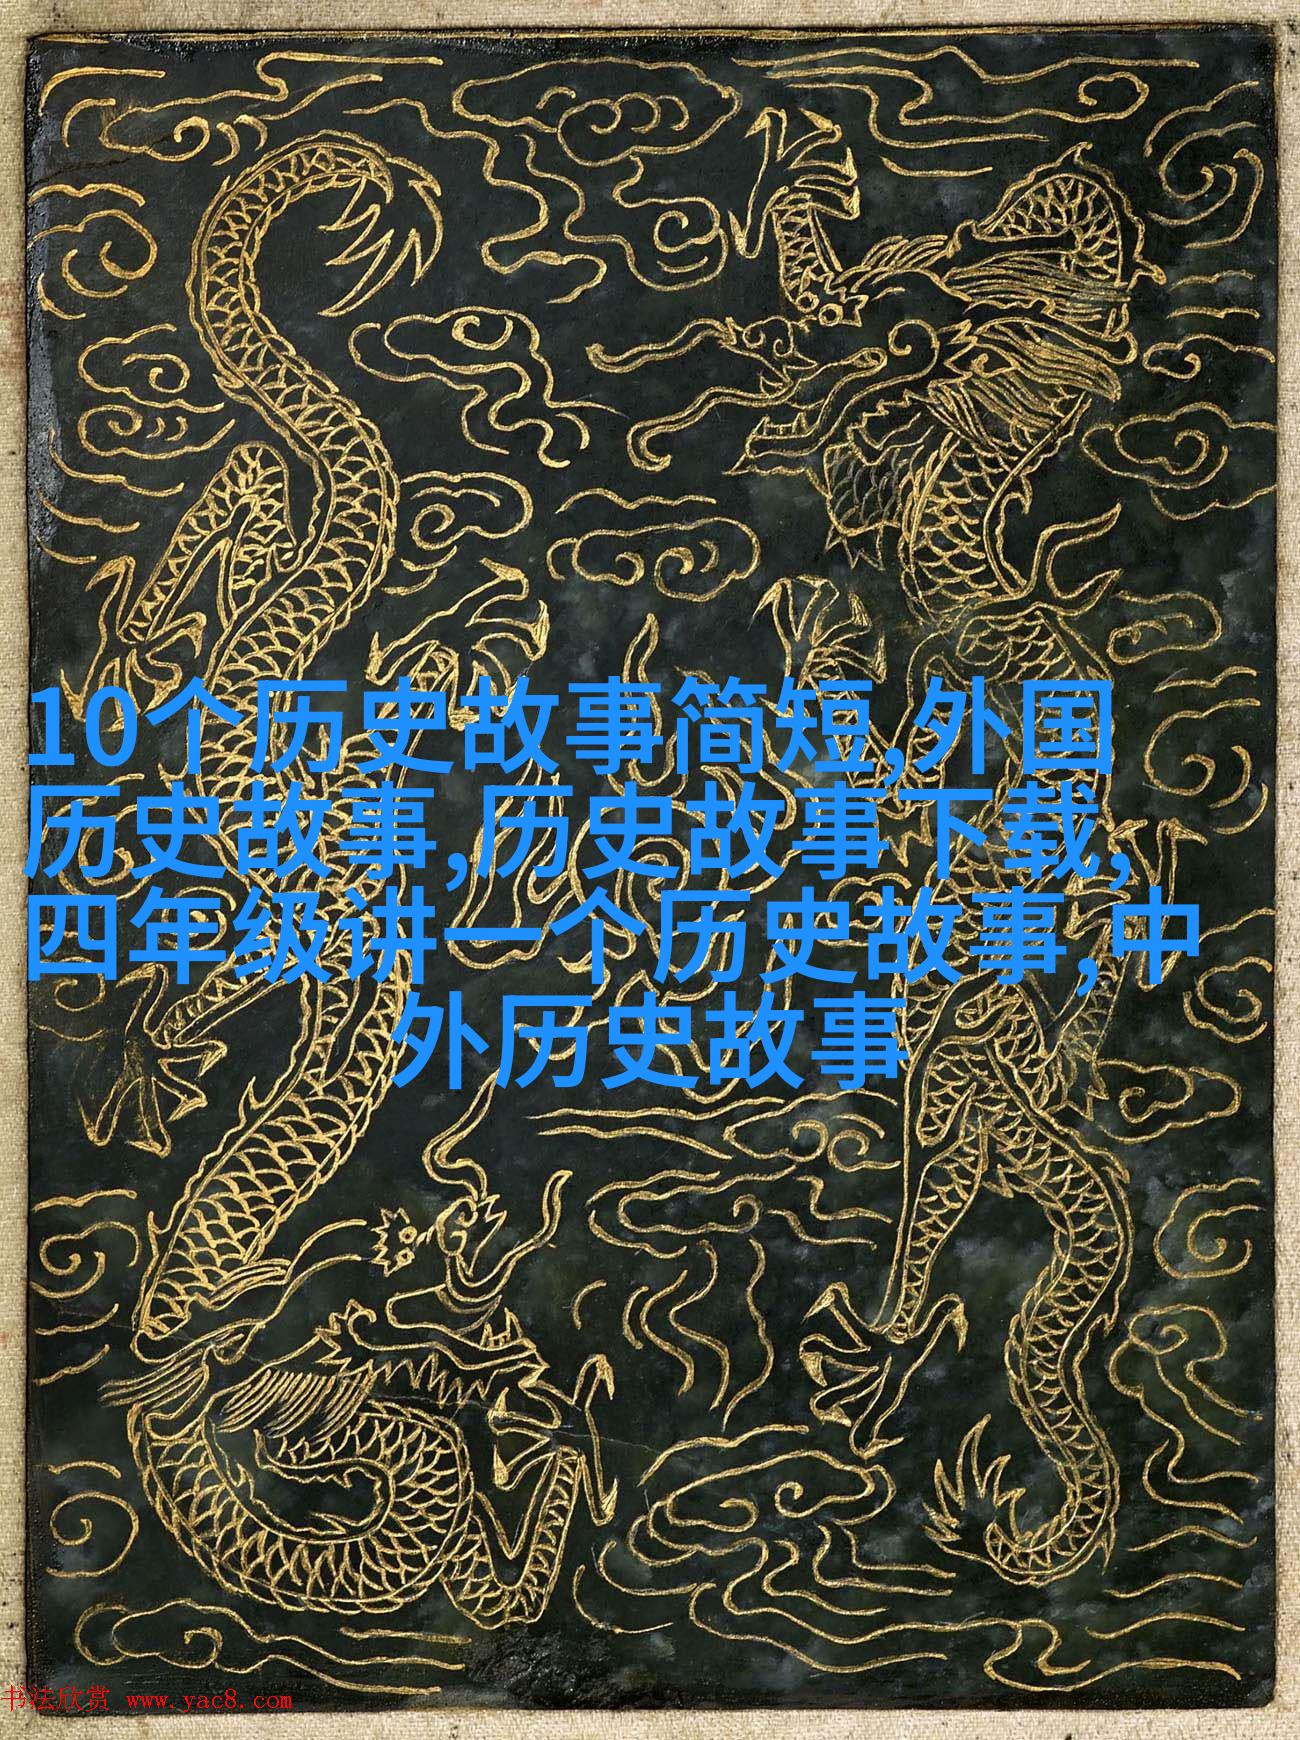 10个历史故事简短,外国
历史故事,历史故事下载,
四年级讲一个历史故事,中
外历史故事
书法欣赏 www.yac8.com